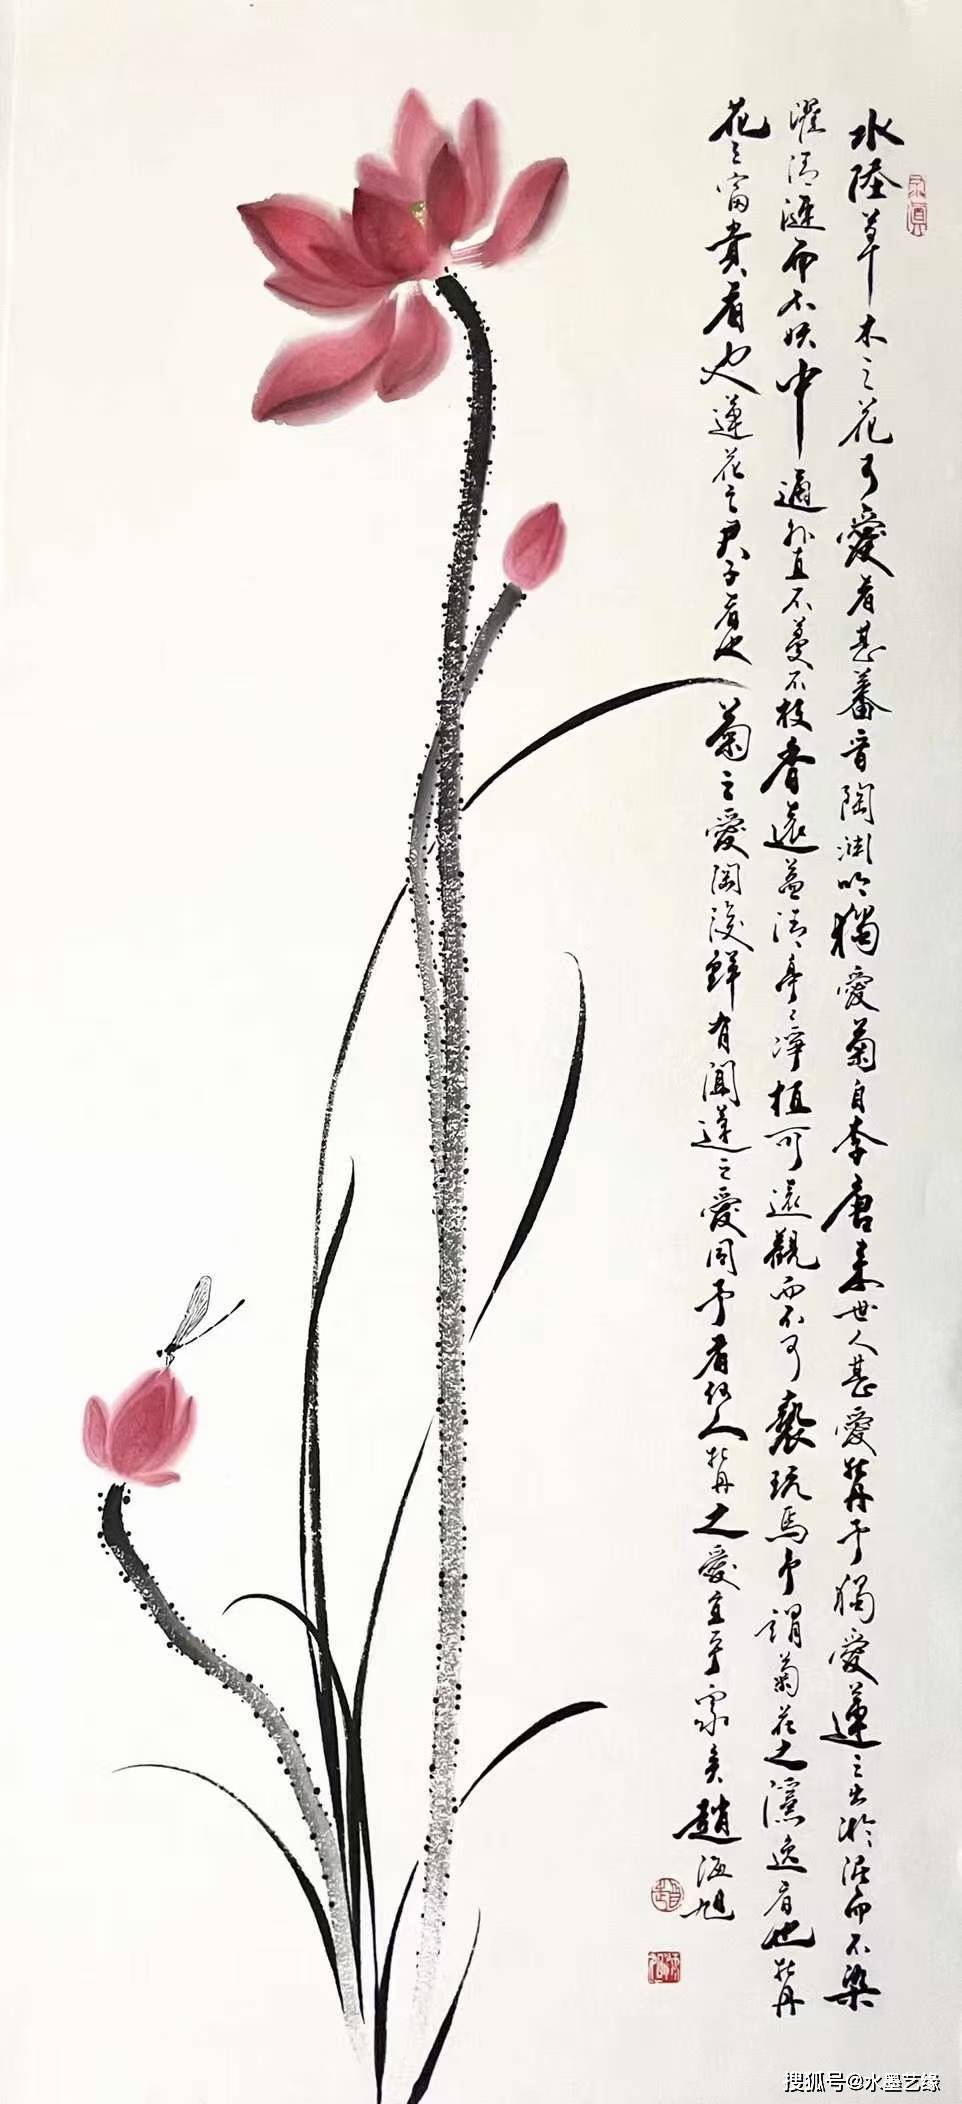 水陸草木之花可愛者甚蕃晉陶淵明獨愛菊自李唐來世人甚愛牡丹予獨愛蓮之出淤泥而不染
濯清漣而不妖中通外直不蔓不枝香遠益清亭々淨植可遠觀而不可褻玩焉予謂菊花之隱逸者也牡丹
花之富貴者也蓮花之君子者也菊之愛陶後鮮有聞蓮之愛同予者何人牡丹之愛宜乎衆矣趙海旭
搜狐号@水墨艺缘